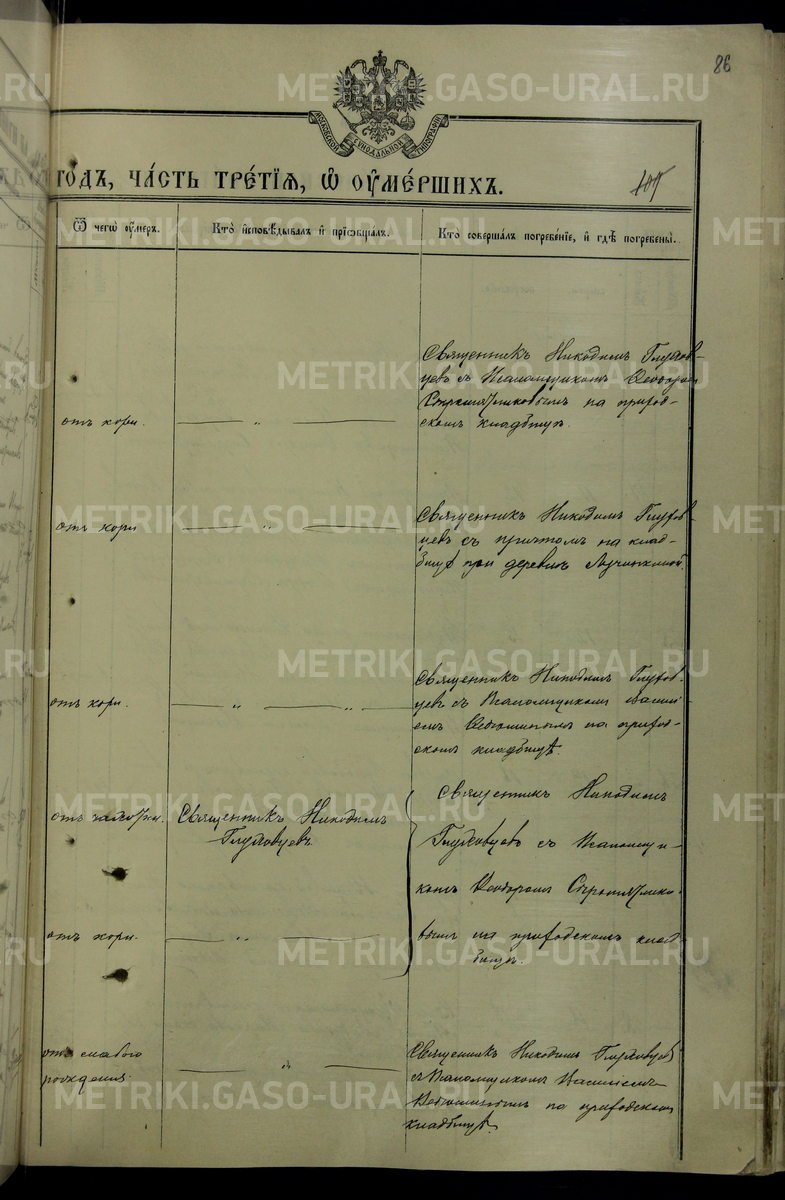 86
МОСКОВСКОЙ СѴНОДАЛЬНОЙ ТИПОГРАФІИ
ГОДЪ, ЧА́СТЬ ТРЕ́ТІѦ, Ѽ ОУ҆МЕ́РШИХЪ.
Ѿ чегѡ̀ оу҆́меръ.
Кто̀ и҆сповѣ́дывалъ и҆ прїѡбща́лъ.
Кто̀ соверша́лъ погребе́нїе, и҆ гдѣ̀ погребены̀.
Священникъ Никодимъ Глухов-
цевъ съ Псаломщикомъ Ѳеодоромъ
на приход-
скомъ кладбищѣ.
отъ кори. — „ —
Священникъ Никодимъ Глухов-
цевъ съ причтомъ на клад-
бищѣ при деревнѣ
отъ кори — „ —
Священникъ Никодимъ Глухов-
цевъ съ Псаломщикомъ Васили-
емъ на приход-
скомъ кладбищѣ.
отъ кори. — „ — „ —
отъ чахотки. Священникъ Никодимъ
Глуховцевъ
Священникъ Никодимъ
Глуховцевъ съ Псаломщи-
комъ Ѳеодоромъ
вымъ на приходскомъ клад-
бищѣ.
отъ кори. — „ —
отъ слабого
рожденія. — „ —
Священникъ Никодимъ Глуховцевъ
съ Псаломщикомъ Василіемъ
на приходскомъ
кладбищѣ.
METRIKI.GASO-URAL.RU